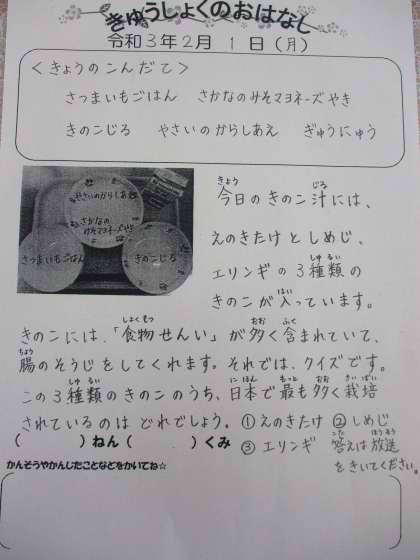 きゅうしょくのおはなし
令和3年2月 1日(月)
<きょうのこんだて>
さつまいもごはん さかなのみそマヨネーズやき
きのこじる やさいのからしあえ ぎゅうにゅう
やさいのからしあえ
さかなの
みそマヨネーズやき
さつまいもごはん
きのこじる
きょう じる
今日のきのこ汁には、
えのきたけとしめじ、
しゅるい
エリンギの3種類の
はい
きのこが入っています。
しょくもつ おお ふく
きのこには、「食物せんい」が多く含まれていて、
ちょう
腸のそうじをしてくれます。それでは、クイズです。
しゅるい にほん もっと おお さいばい
この3種類のきのこのうち、日本で最も多く栽培
されているのはどれでしょう。①えのきたけ ②しめじ
こた ほうそう
③エリンギ 答えは放送
をきいてください。
( )ねん( )くみ
かんそうやかんじたことなどをかいてね☆